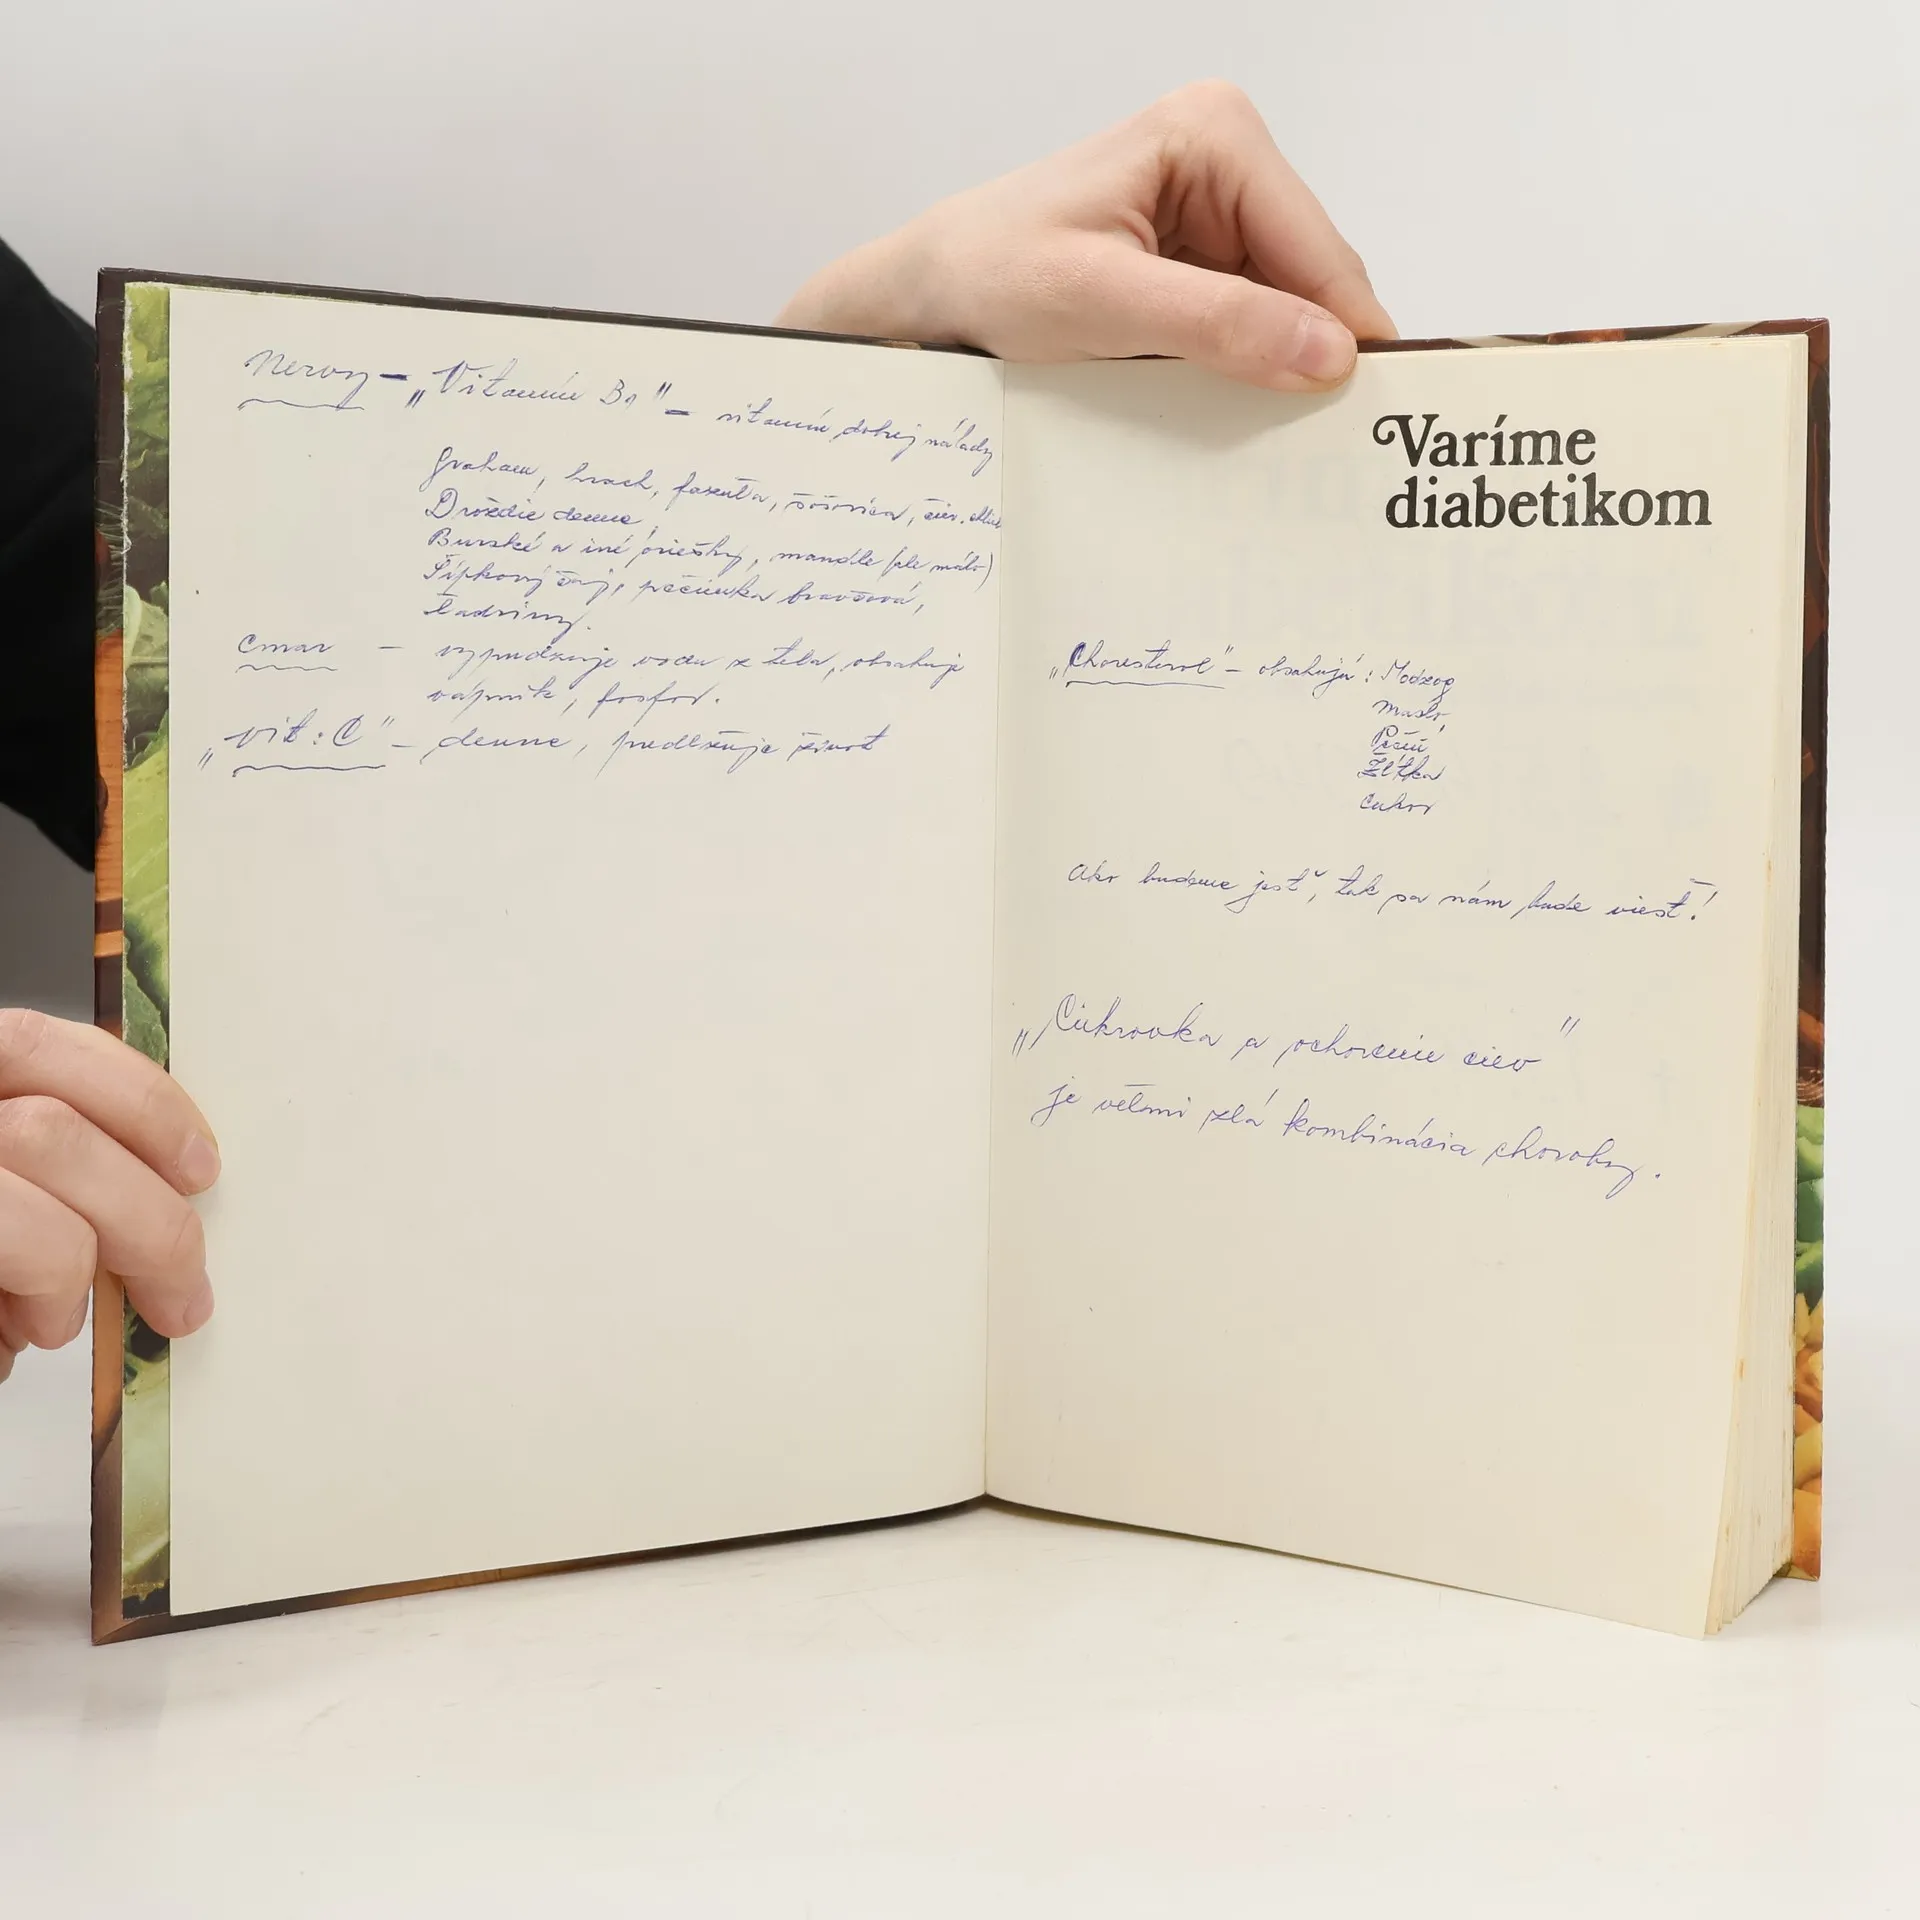 Nervy – „Vitamín B1" – vitamín dobrej nálady
Graham, hrach, fazuľa, šošovica, čier. chlieb
Droždie denne,
Burské a iné oriešky, mandle (ale málo)
Šípkový čaj, pečienka bravčová,
ľadviny.
Cmar – vypudzuje vodu z tela, obsahuje
vápnik, fosfor.
„vit: C" – denne, predlžuje život
Varíme
diabetikom
„Choresterol" – obsahujú: Modzog
Maslo,
Pečeň
Žĺtka
Cukor
Ako budeme jesť, tak sa nám bude viesť!
„Cukrovka a ochorenie ciev"
je veľmi zlá kombinácia choroby.